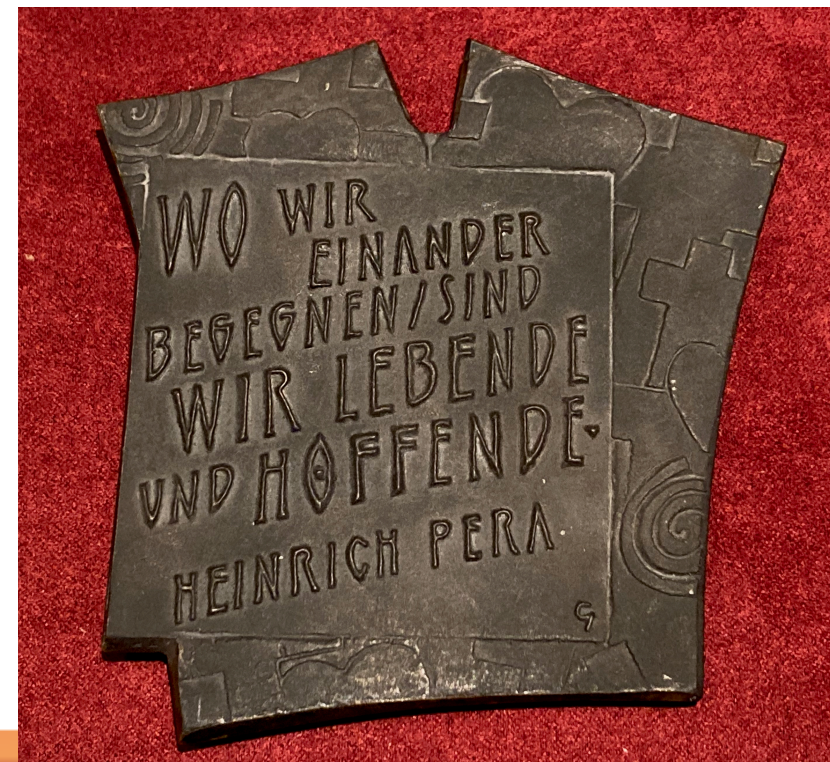 WO WIR
EINANDER
BEGEGNEN/SIND
WIR LEBENDE
UND HOFFENDE.
HEINRICH PERA
G